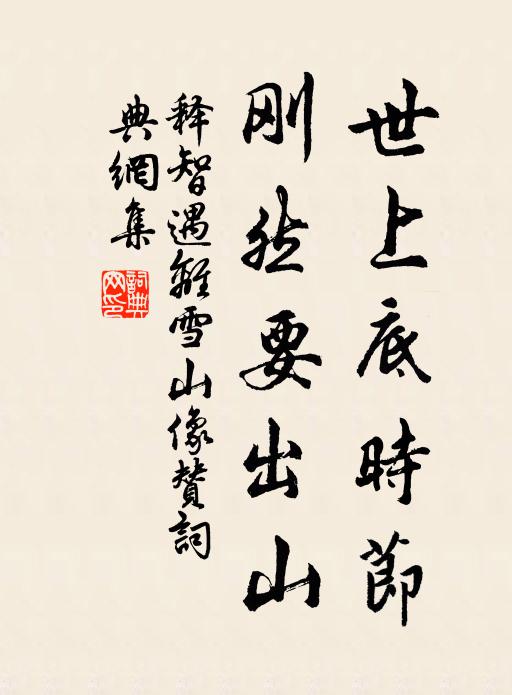 世上底時節
刚然要出山
释智遇離雪山像贊詞
典網集
詞典網印